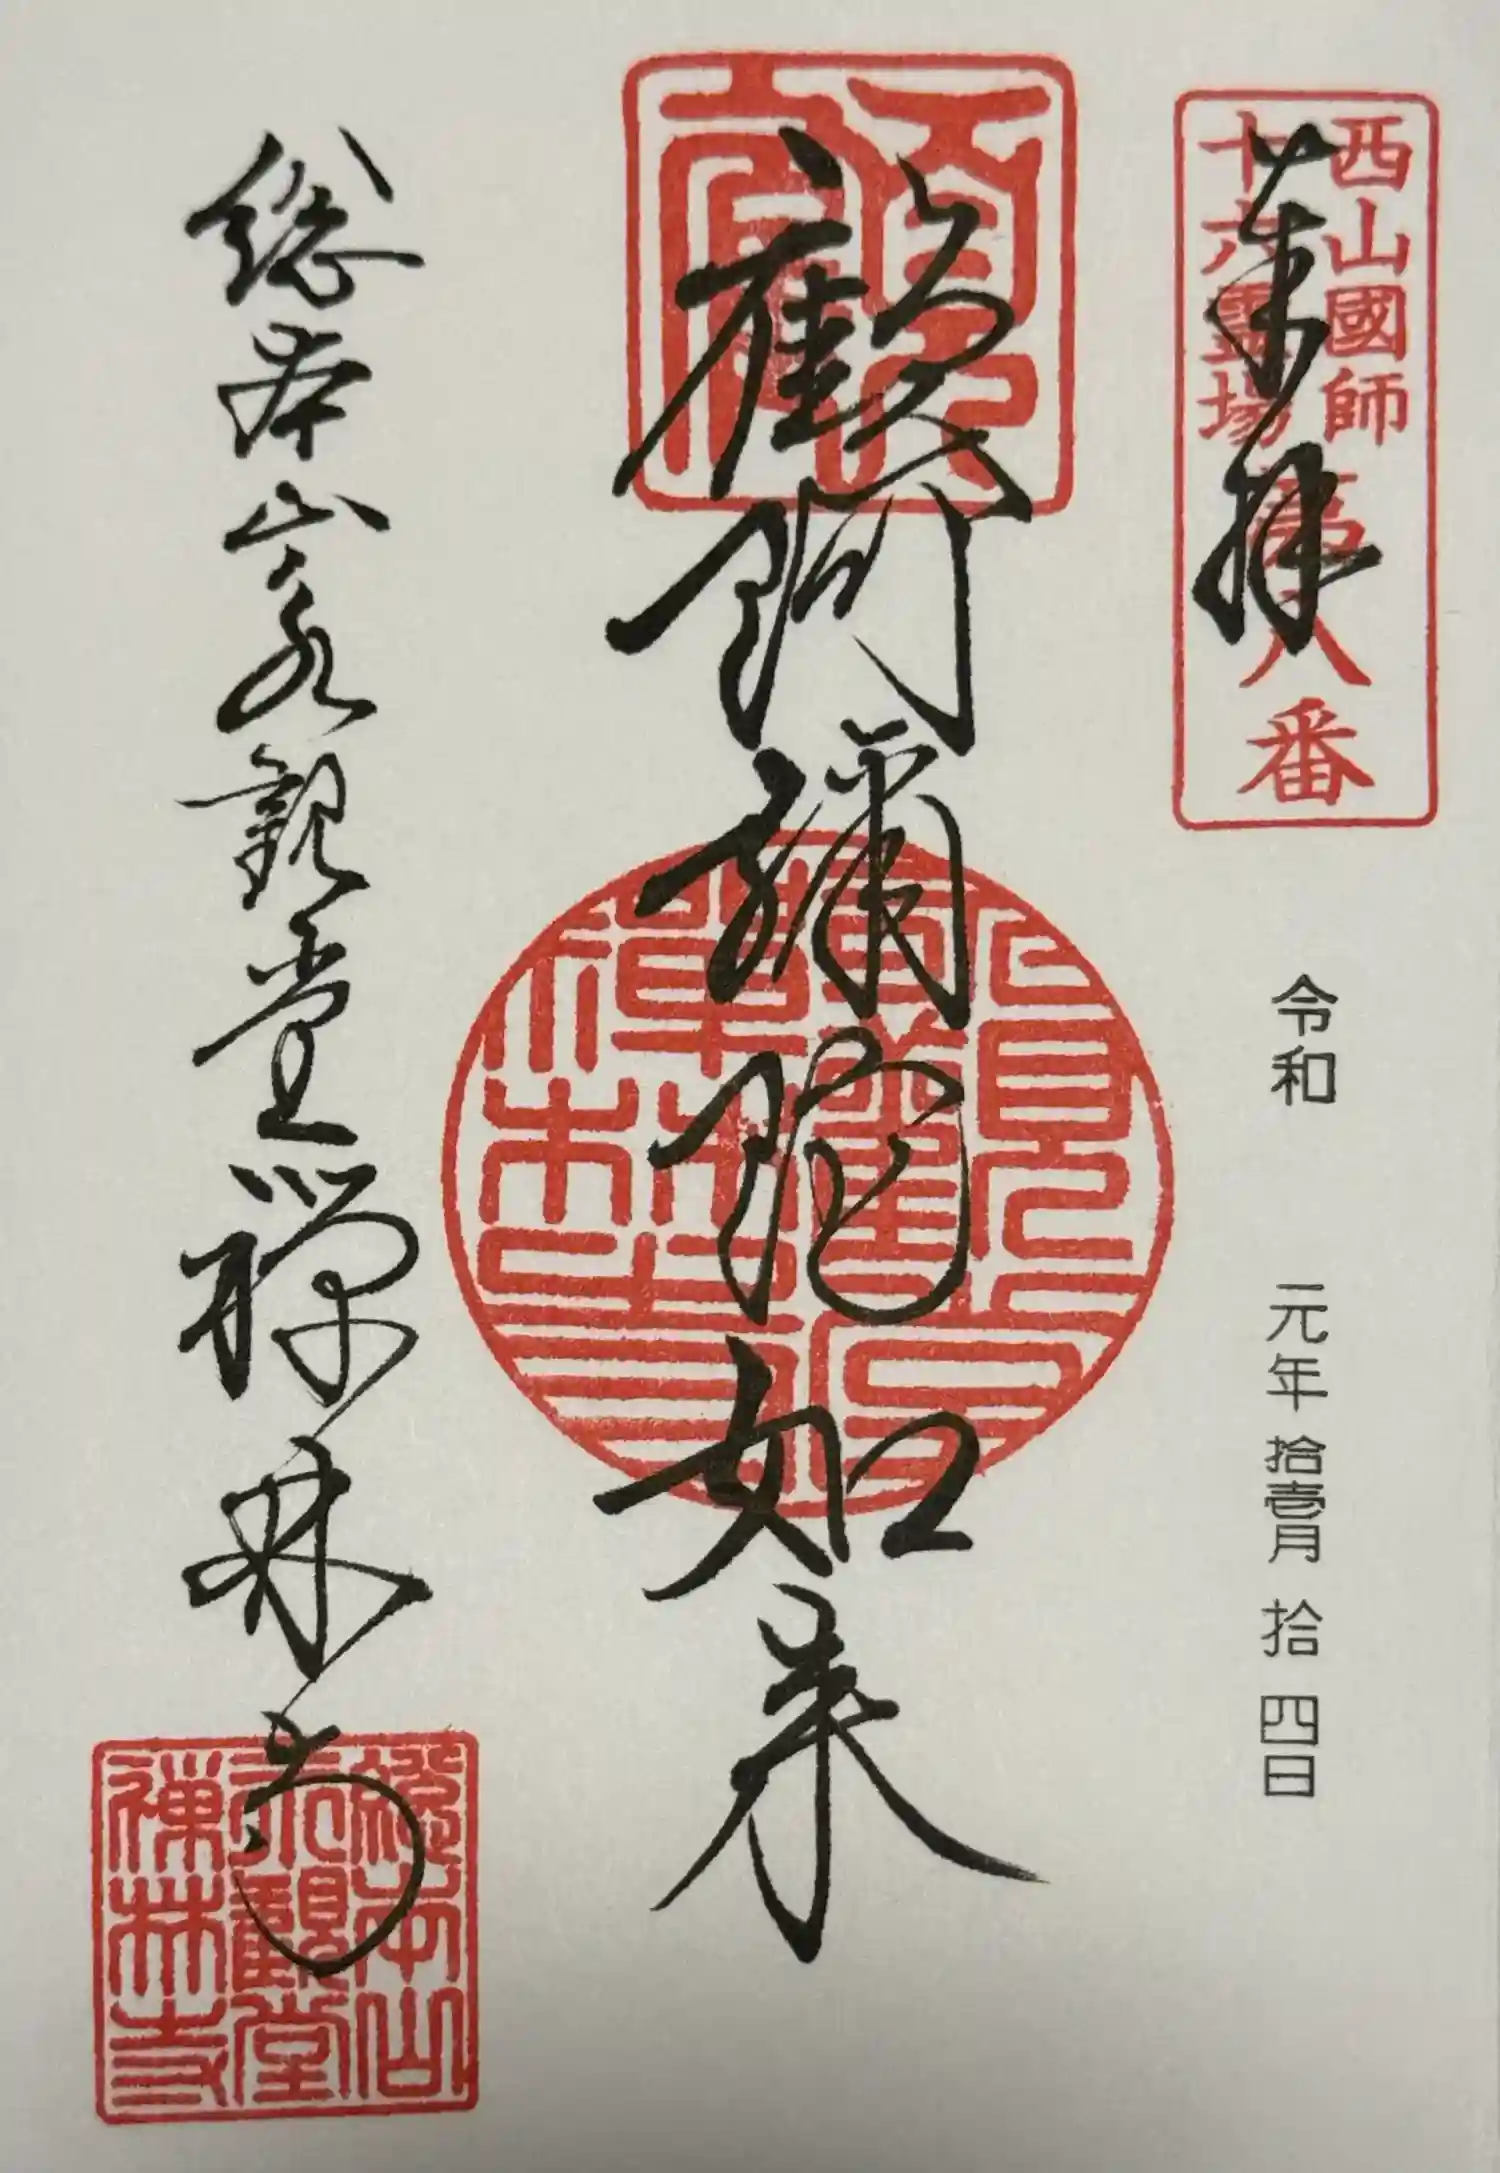 西山國師
十六霊場
第八番
奉拝
令和 元年 拾壱月 拾四日
顧阿彌陀如来
総本山永観堂禅林寺
總本山
永觀堂
禪林寺